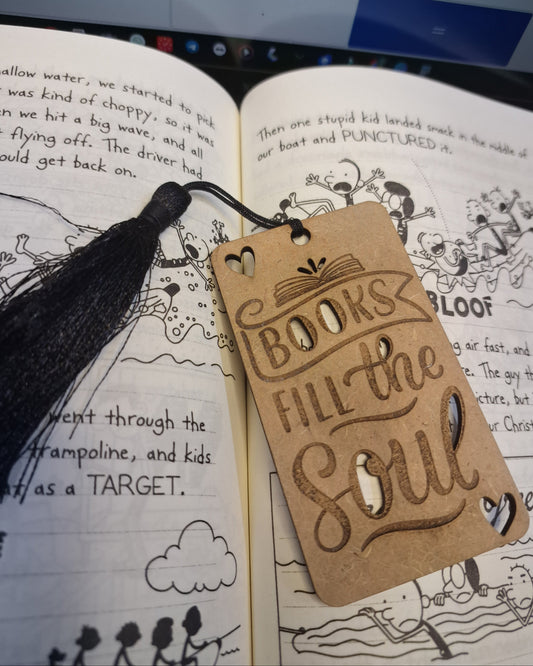 allow water, we started to pick
was kind of choppy, so it was
en we hit a big wave, and all
flying off. The driver had
ould get back on.
went through the
trampoline, and kids
as a TARGET.
Then one stupid kid landed smack in the middle of
our boat and PUNCTURED it.
BLOOF
g air fast, and
re. The guy th
icture, but
ur Christ
BOOKS
FILL the
Soul